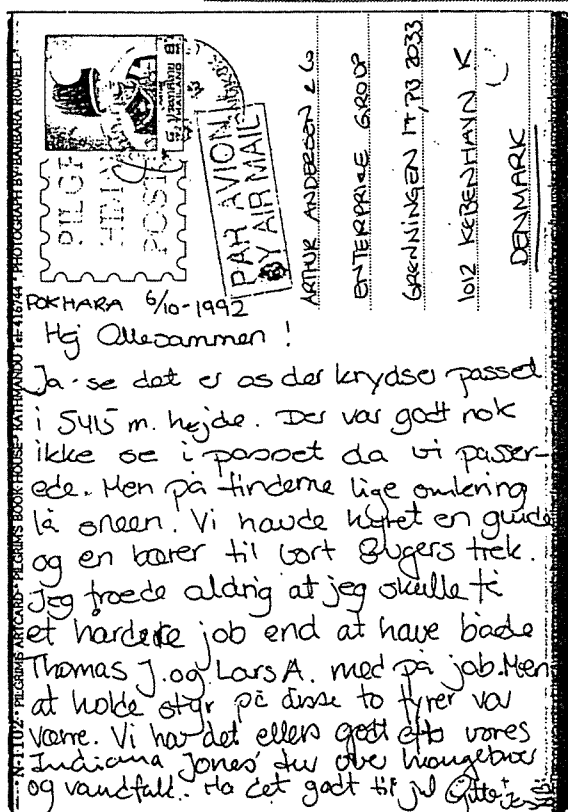 N-1-102 · PILGRIMS ARTCARD · PILGRIMS BOOK HOUSE · KATHMANDU Tel: 416744 · PHOTOGRAPH BY BARBARA ROWELL
PAR AVION
BY AIR MAIL
ARTHUR ANDERSEN & Co
ENTERPRISE GROUP
GRØNNINGEN 17, PB 2033
1012 KØBENHAVN K
DENMARK
POKHARA 6/10-1992
Hej Allesammen !
Ja - se det er os der krydser passet
i 5415 m. højde. Der var godt nok
ikke se i passet da vi passer-
ede. Men på tinderne lige omkring
lå sneen. Vi havde hyret en guide
og en bærer til vort 3 ugers trek.
Jeg troede aldrig at jeg skulle få
et hårdere job end at have både
Thomas J. og Lars A. med på job. Men
at holde styr på disse to fyrer var
værre. Vi har det ellers godt efter vores
Indiana Jones' tur over hængebroer
og vandfald. Ha det godt til jul Gitte